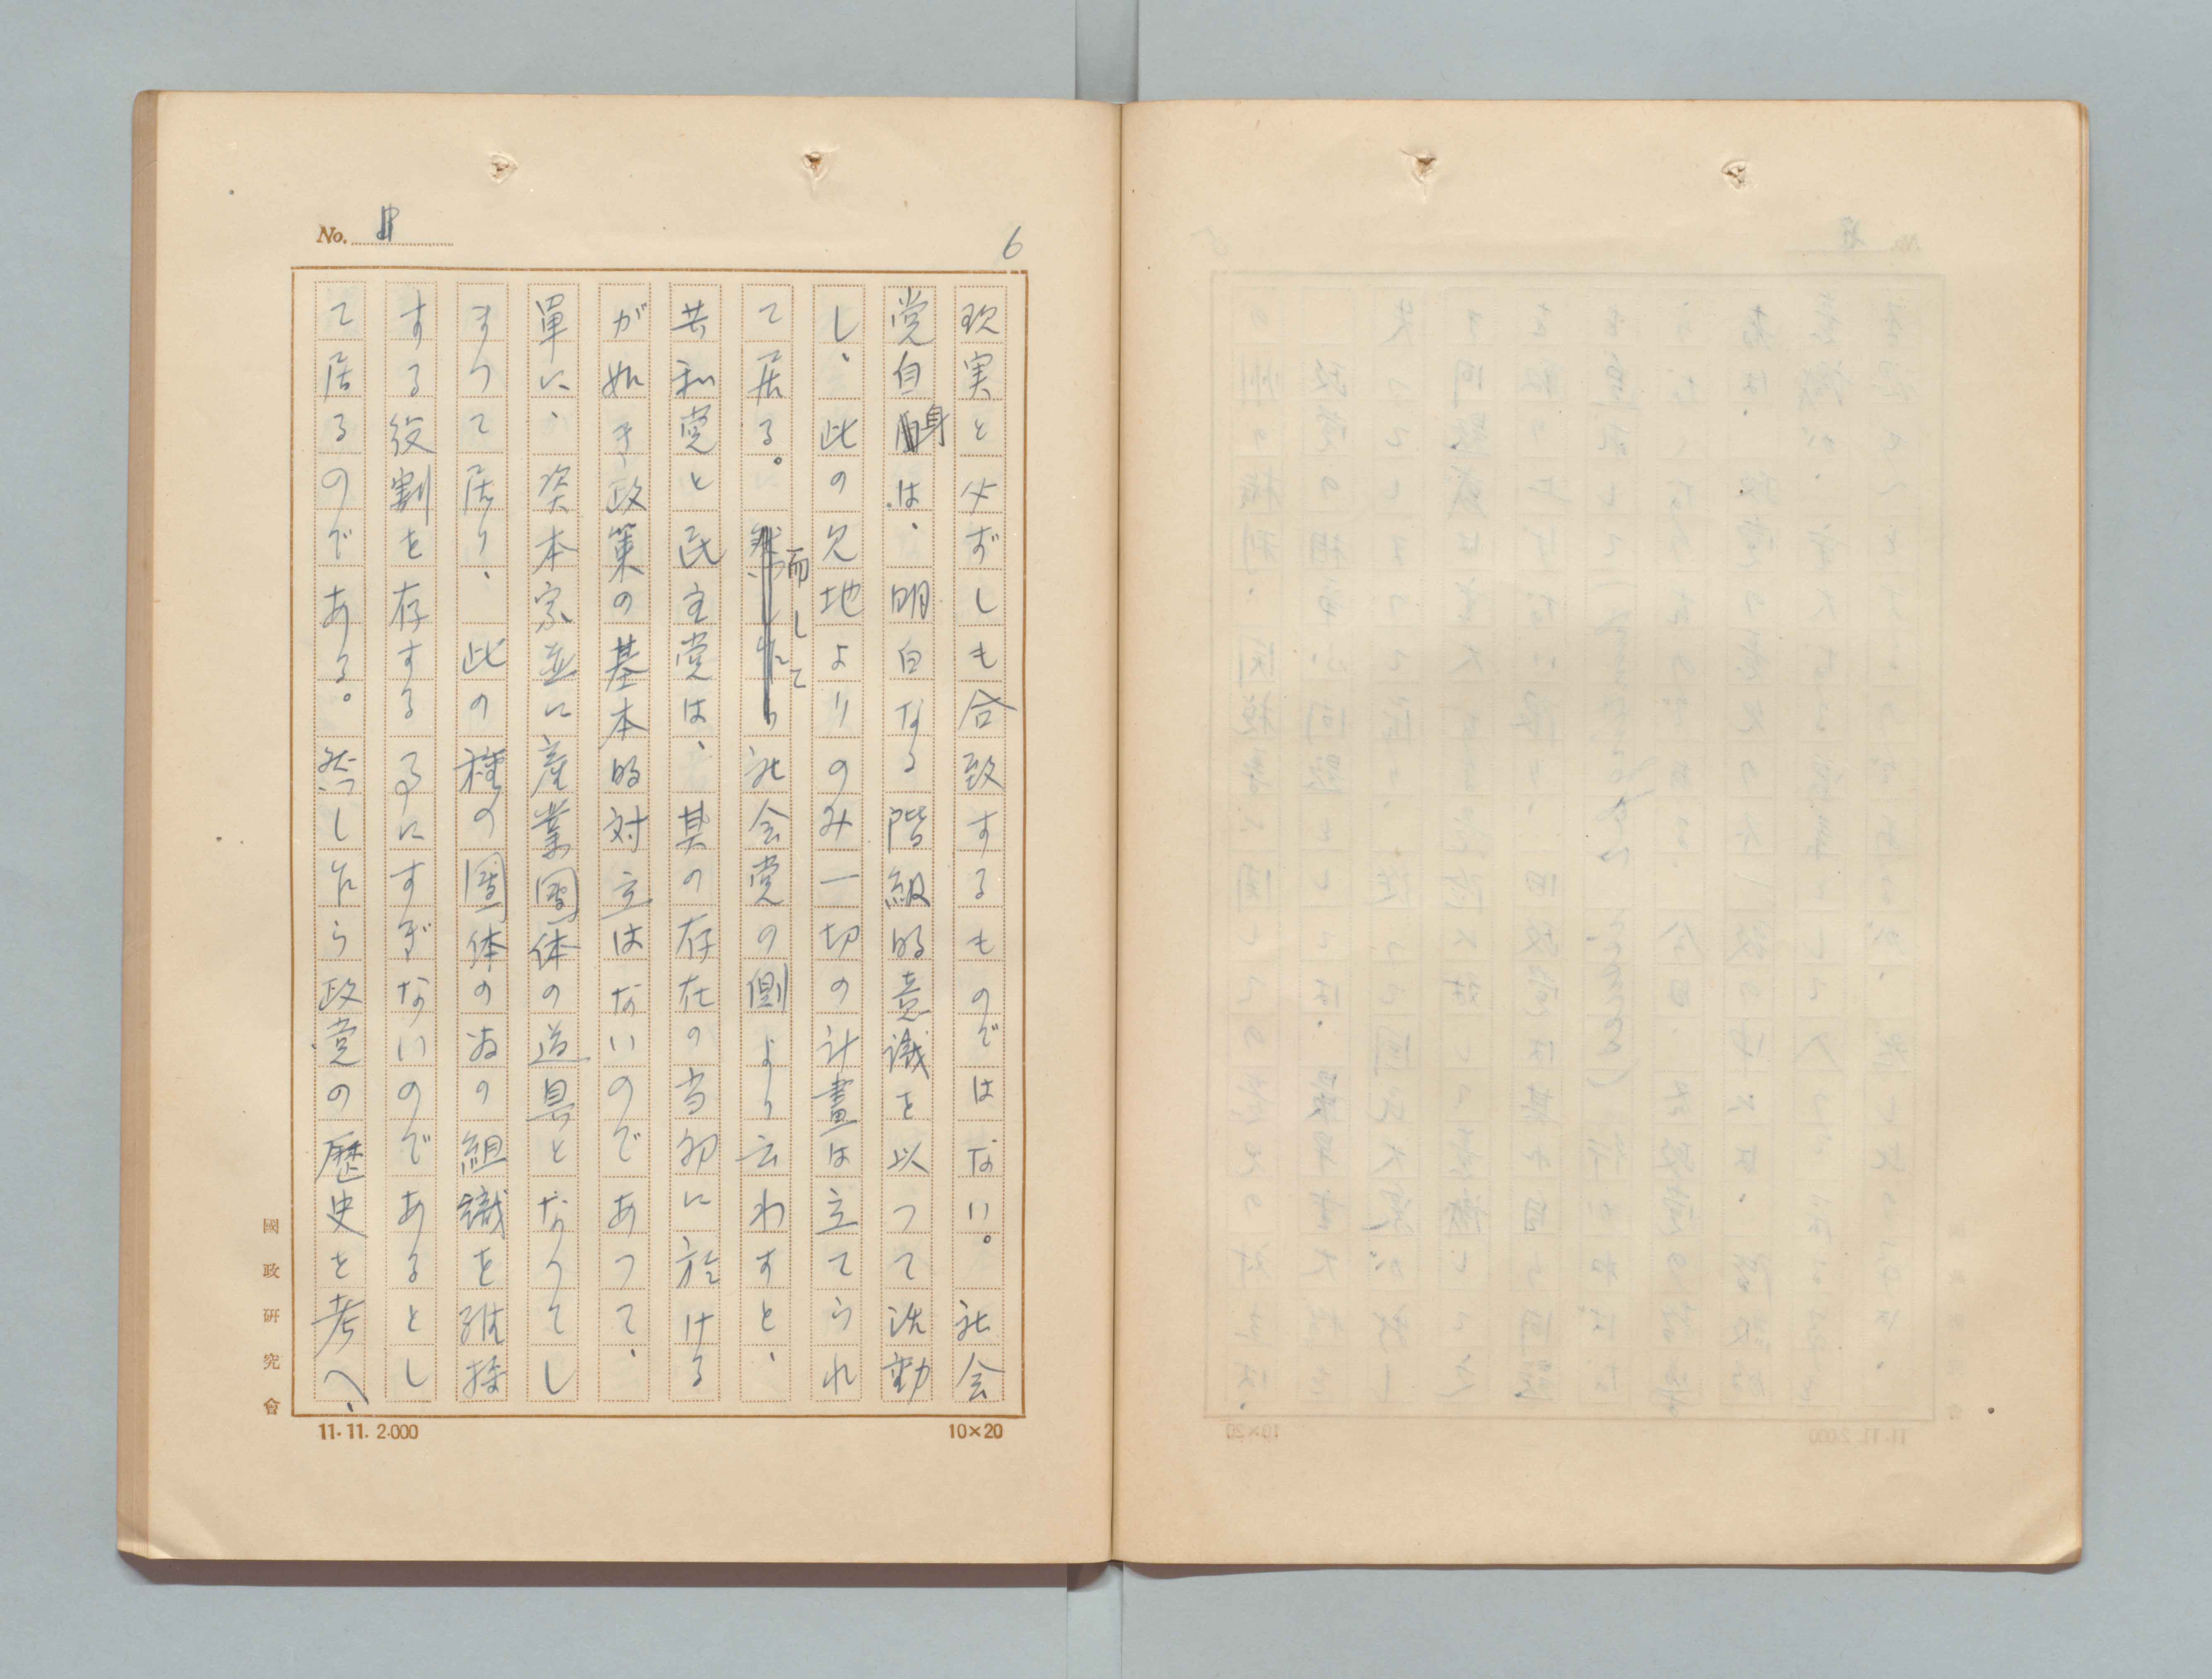 No.
6
現実と必ずしも合致するものではない。社会
党自身は、明白なる階級的意識を以つて活動
し、此の見地よりのみ一切の計畫は立てられ
て居る。而して社会党の側より云わすと、
共和党と民主党は、其の存在の当初に於ける
が如き政策の基本的対立はないのであつて、
單に、資本家並に産業團体の道具となつてし
まつて居り、此の種の團体の為の組識を維持
する役割を存する事にすぎないのであるとし
て居るのである。然し乍ら政党の歴史を考へ、
國政研究會
11.11.2.000
10×20